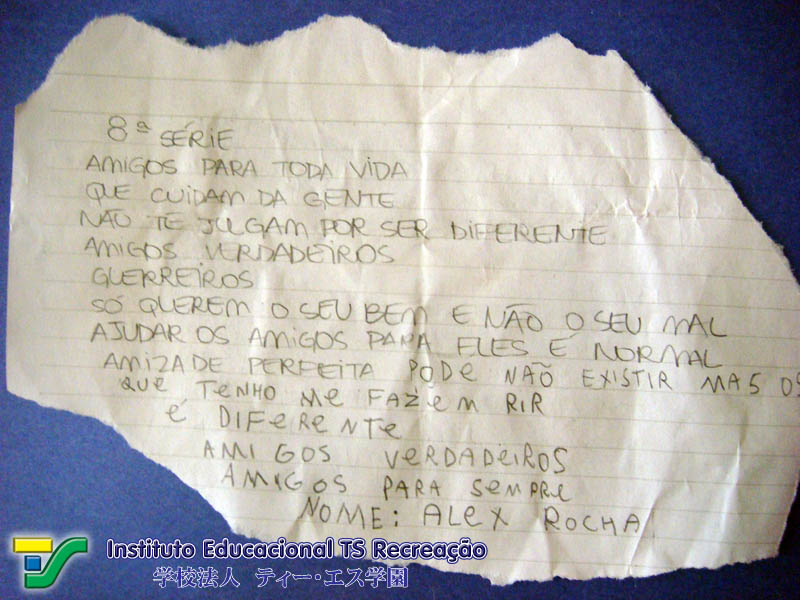 8ª SÉRIE
AMIGOS PARA TODA VIDA
QUE CUIDAM DA GENTE
NÃO TE JULGAM POR SER DIFERENTE
AMIGOS VERDADEIROS
GUERREIROS
SÓ QUEREM O SEU BEM E NÃO O SEU MAL
AJUDAR OS AMIGOS PARA ELES É NORMAL
AMIZADE PERFEITA PODE NÃO EXISTIR MAS OS
QUE TENHO ME FAZEM RIR
É DIFERENTE
AMIGOS VERDADEIROS
AMIGOS PARA SEMPRE
NOME: ALEX ROCHA
Instituto Educacional TS Recreação
学校法人 ティー・エス学園